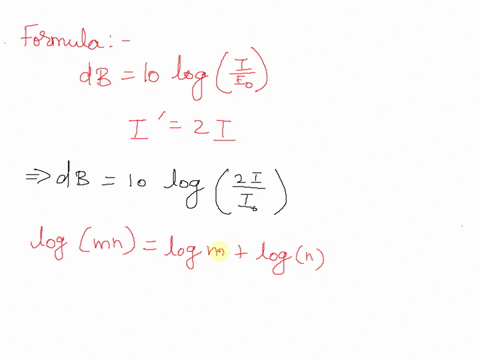 Formula:-
dB = 10 log (I/E₀)
I' = 2I
⇒ dB = 10 log (2I/I₀)
log (mn) = log m + log (n)